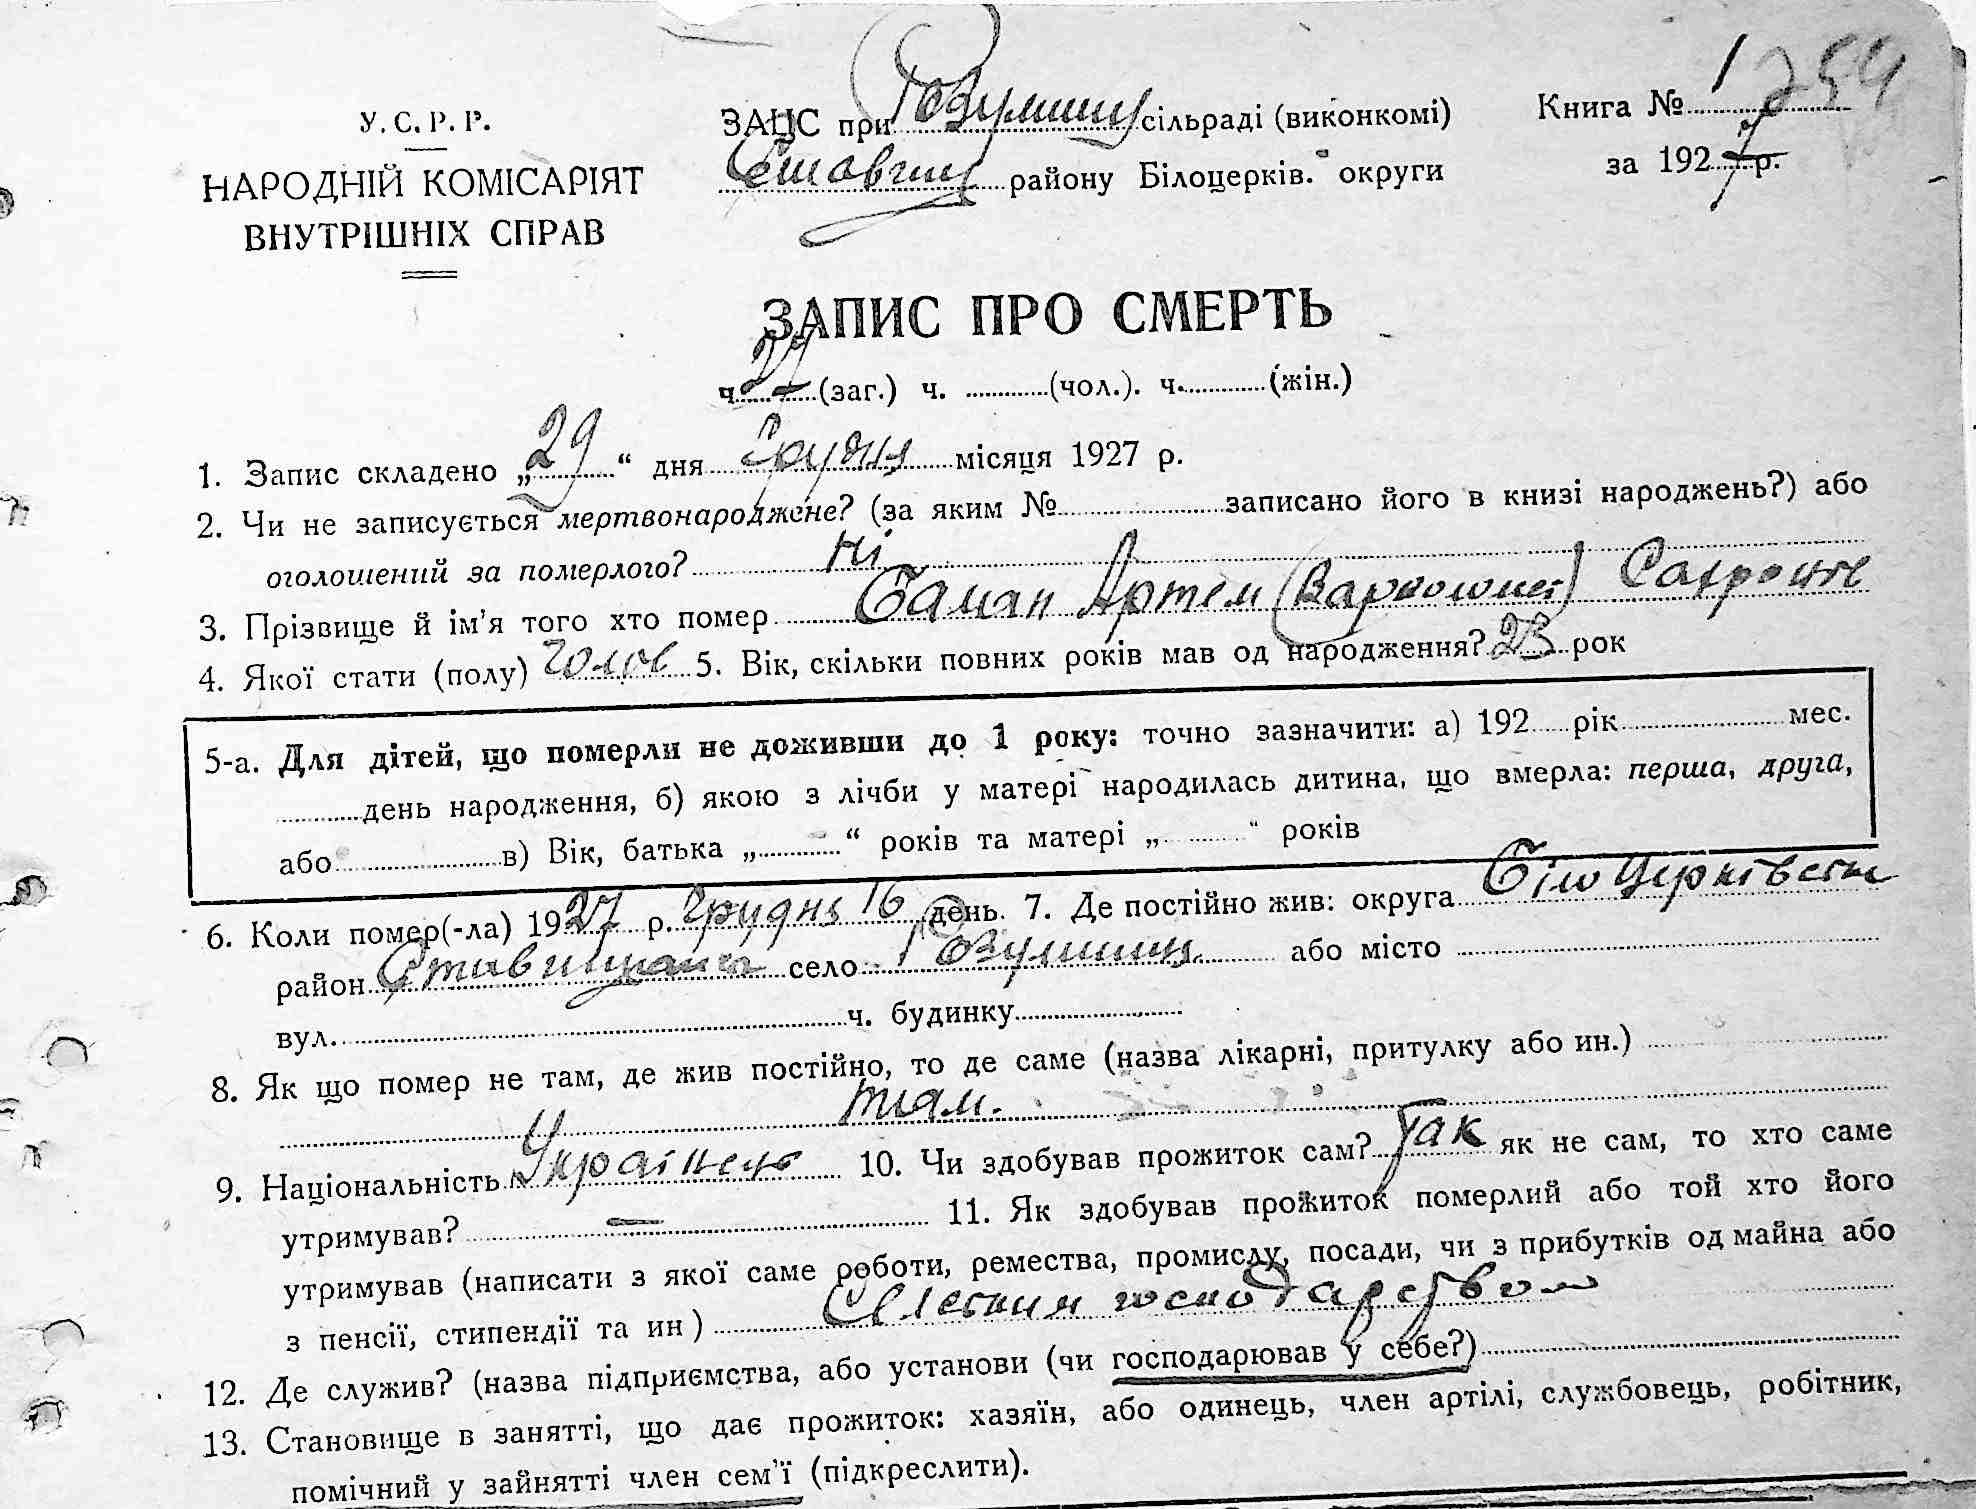 У. С. Р. Р.
НАРОДНІЙ КОМІСАРІЯТ
ВНУТРІШНІХ СПРАВ
ЗАЦС при сільраді (виконкомі)
району Білоцерків. округи
Книга № 1 254
за 1927 р.
ЗАПИС ПРО СМЕРТЬ
ч. (заг.) ч. (чол.). ч. (жін.)
1. Запис складено „29“ дня Грудня місяця 1927 р.
2. Чи не записується мертвонароджене? (за яким № записано його в книзі народжень?) або
оголошений за померлого? Ні
3. Прізвище й ім'я того хто помер Баман Артем
4. Якої стати (полу) чолов 5. Вік, скільки повних років мав од народження? 23 рок
5-а. Для дітей, що померли не доживши до 1 року: точно зазначити: а) 192 рік мес.
день народження, б) якою з лічби у матері народилась дитина, що вмерла: перша, друга,
або в) Вік, батька „ “ років та матері „ “ років
6. Коли помер(-ла) 1927 р. Грудня 16 день. 7. Де постійно жив: округа
район село або місто
вул. ч. будинку
8. Як що помер не там, де жив постійно, то де саме (назва лікарні, притулку або ин.)
там.
9. Національність Українець 10. Чи здобував прожиток сам? Так як не сам, то хто саме
утримував? — 11. Як здобував прожиток померлий або той хто його
утримував (написати з якої саме роботи, ремества, промислу, посади, чи з прибутків од майна або
з пенсії, стипендії та ин ) господарством
12. Де служив? (назва підприємства, або установи (чи господарював у себе?)
13. Становище в занятті, що дає прожиток: хазяїн, або одинець, член артілі, службовець, робітник,
помічний у зайнятті член сем'ї (підкреслити).